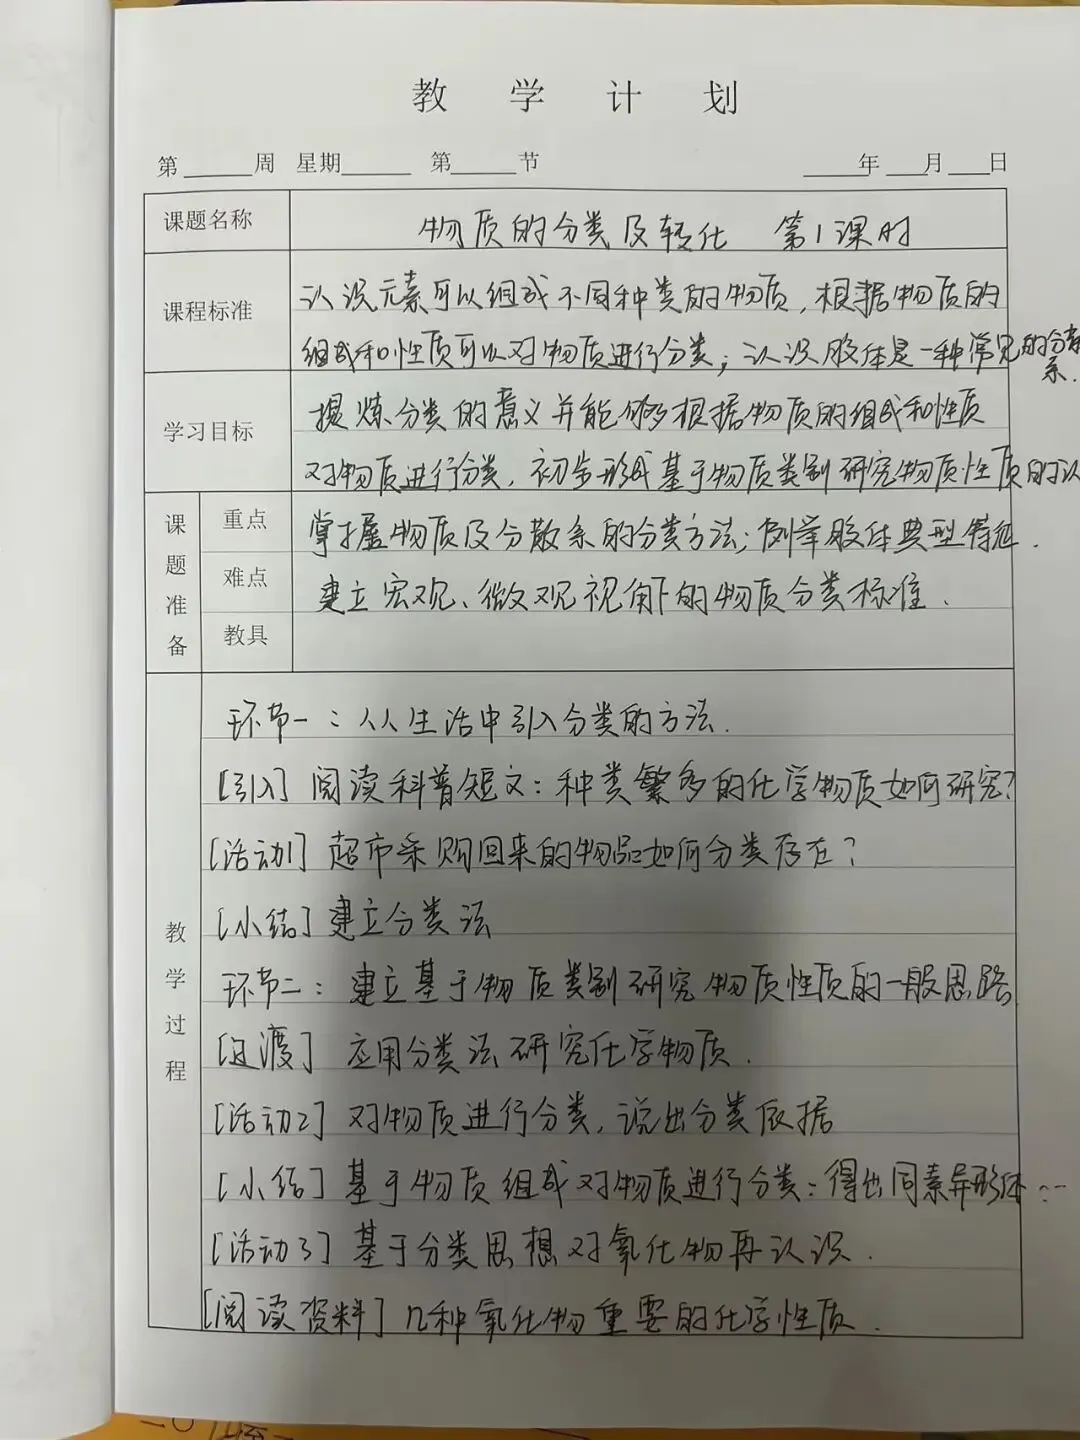 教学计划
第____周 星期____ 第____节 ____年__月__日
课题名称 物质的分类及转化 第1课时
课程标准 认识元素可以组成不同种类的物质，根据物质的
组成和性质可以对物质进行分类；认识胶体是一种常见的分散
系.
学习目标 提炼分类的意义并能够根据物质的组成和性质
对物质进行分类，初步形成基于物质类别研究物质性质的认
课题准备
重点 掌握物质及分散系的分类方法；例举胶体典型特征.
难点 建立宏观、微观视角下的物质分类标准.
教具
教学过程
环节一：从生活中引入分类的方法.
[引入] 阅读科普短文：种类繁多的化学物质如何研究？
[活动1] 超市采购回来的物品如何分类存在？
[小结] 建立分类法
环节二：建立基于物质类别研究物质性质的一般思路
[过渡] 应用分类法研究化学物质.
[活动2] 对物质进行分类，说出分类依据
[小结] 基于物质组成对物质进行分类：得出同素异形体…
[活动3] 基于分类思想对氧化物再认识.
[阅读资料] 几种氧化物重要的化学性质.